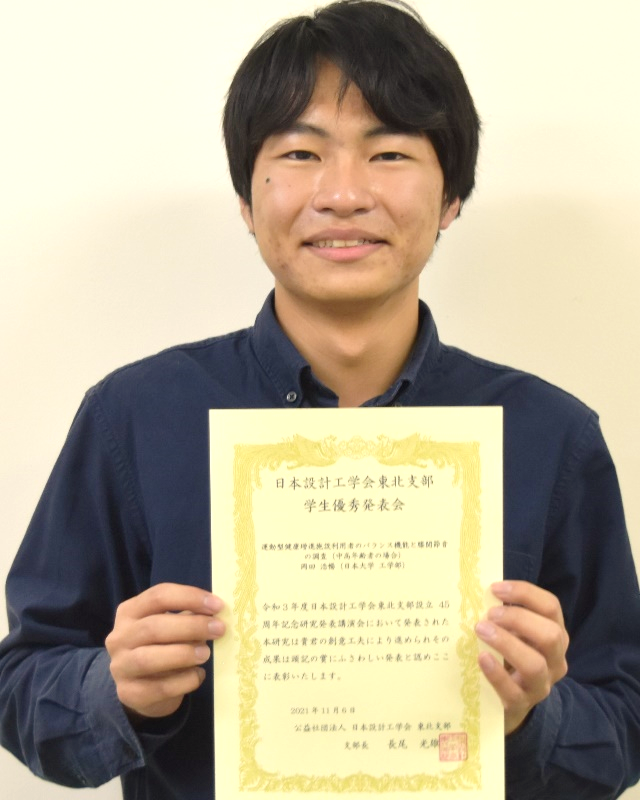 日本設計工学会東北支部
学生優秀発表会
運動型健康増進施設利用者のバランス機能と膝関節者
の調査（中高年齢者の場合）
岡田 浩暢（日本大学 工学部）
令和３年度日本設計工学会東北支部設立 45
周年記念研究発表講演会において発表された
本研究は貴君の創意工夫により進められその
成果は頭記の賞にふさわしい発表と認めここ
に表彰いたします。
2021 年 11 月 6 日
公益社団法人 日本設計工学会 東北支部
支部長 長尾 光雄